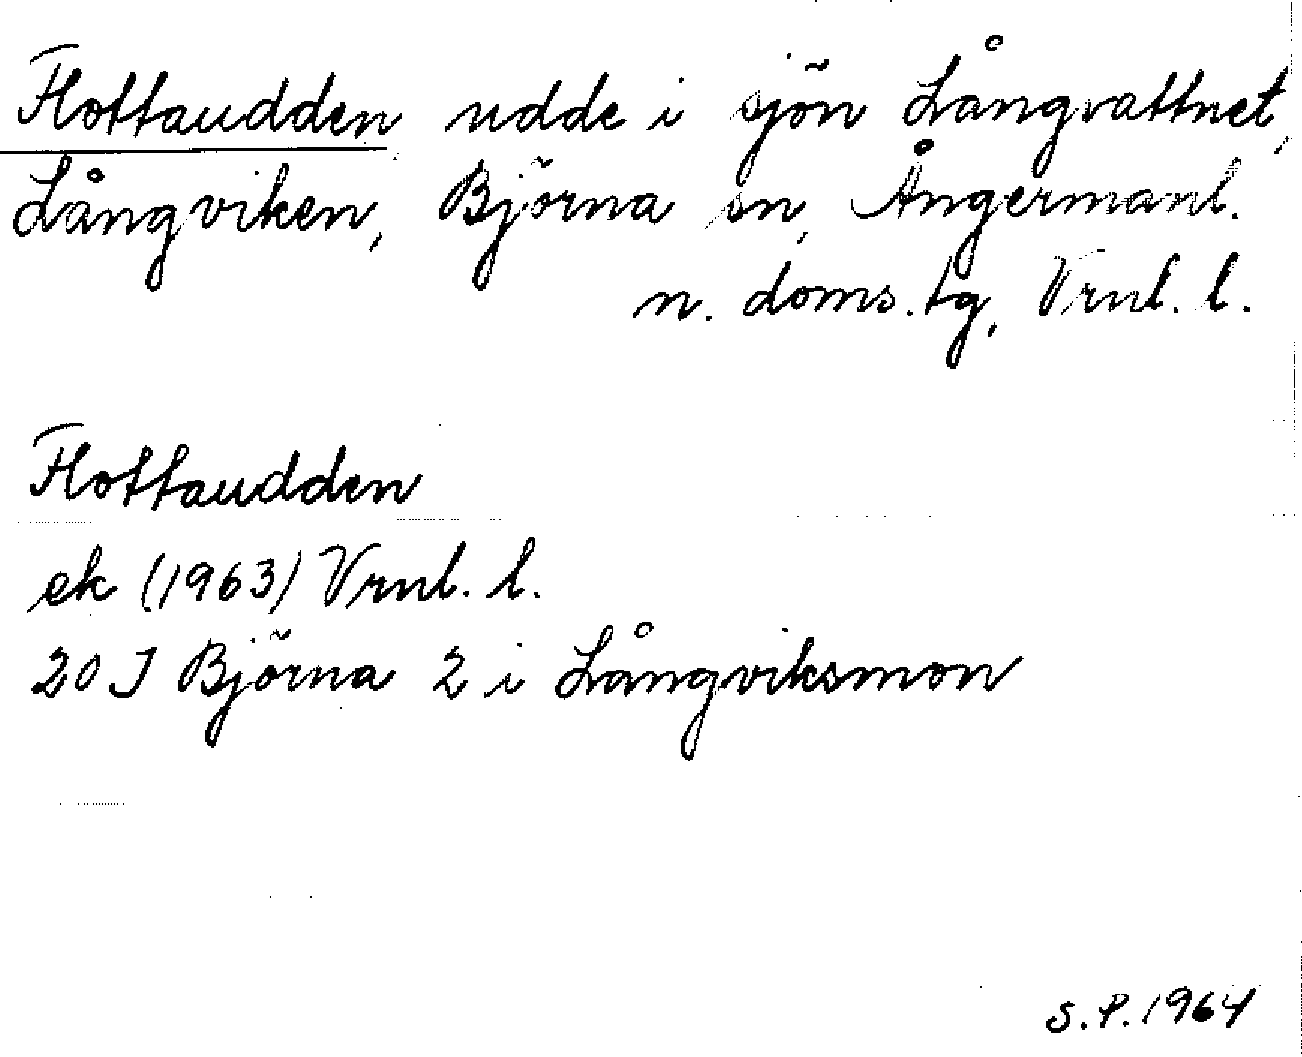 Flottaudden udde i sjön Långvattnet,
Långviken, Björna sn, Ångermanl.
n. doms.tg, Vrnl. l.
Flottaudden
ek (1963) Vrnl. l.
20 J Björna 2 i Långviksmon
S.P. 1964